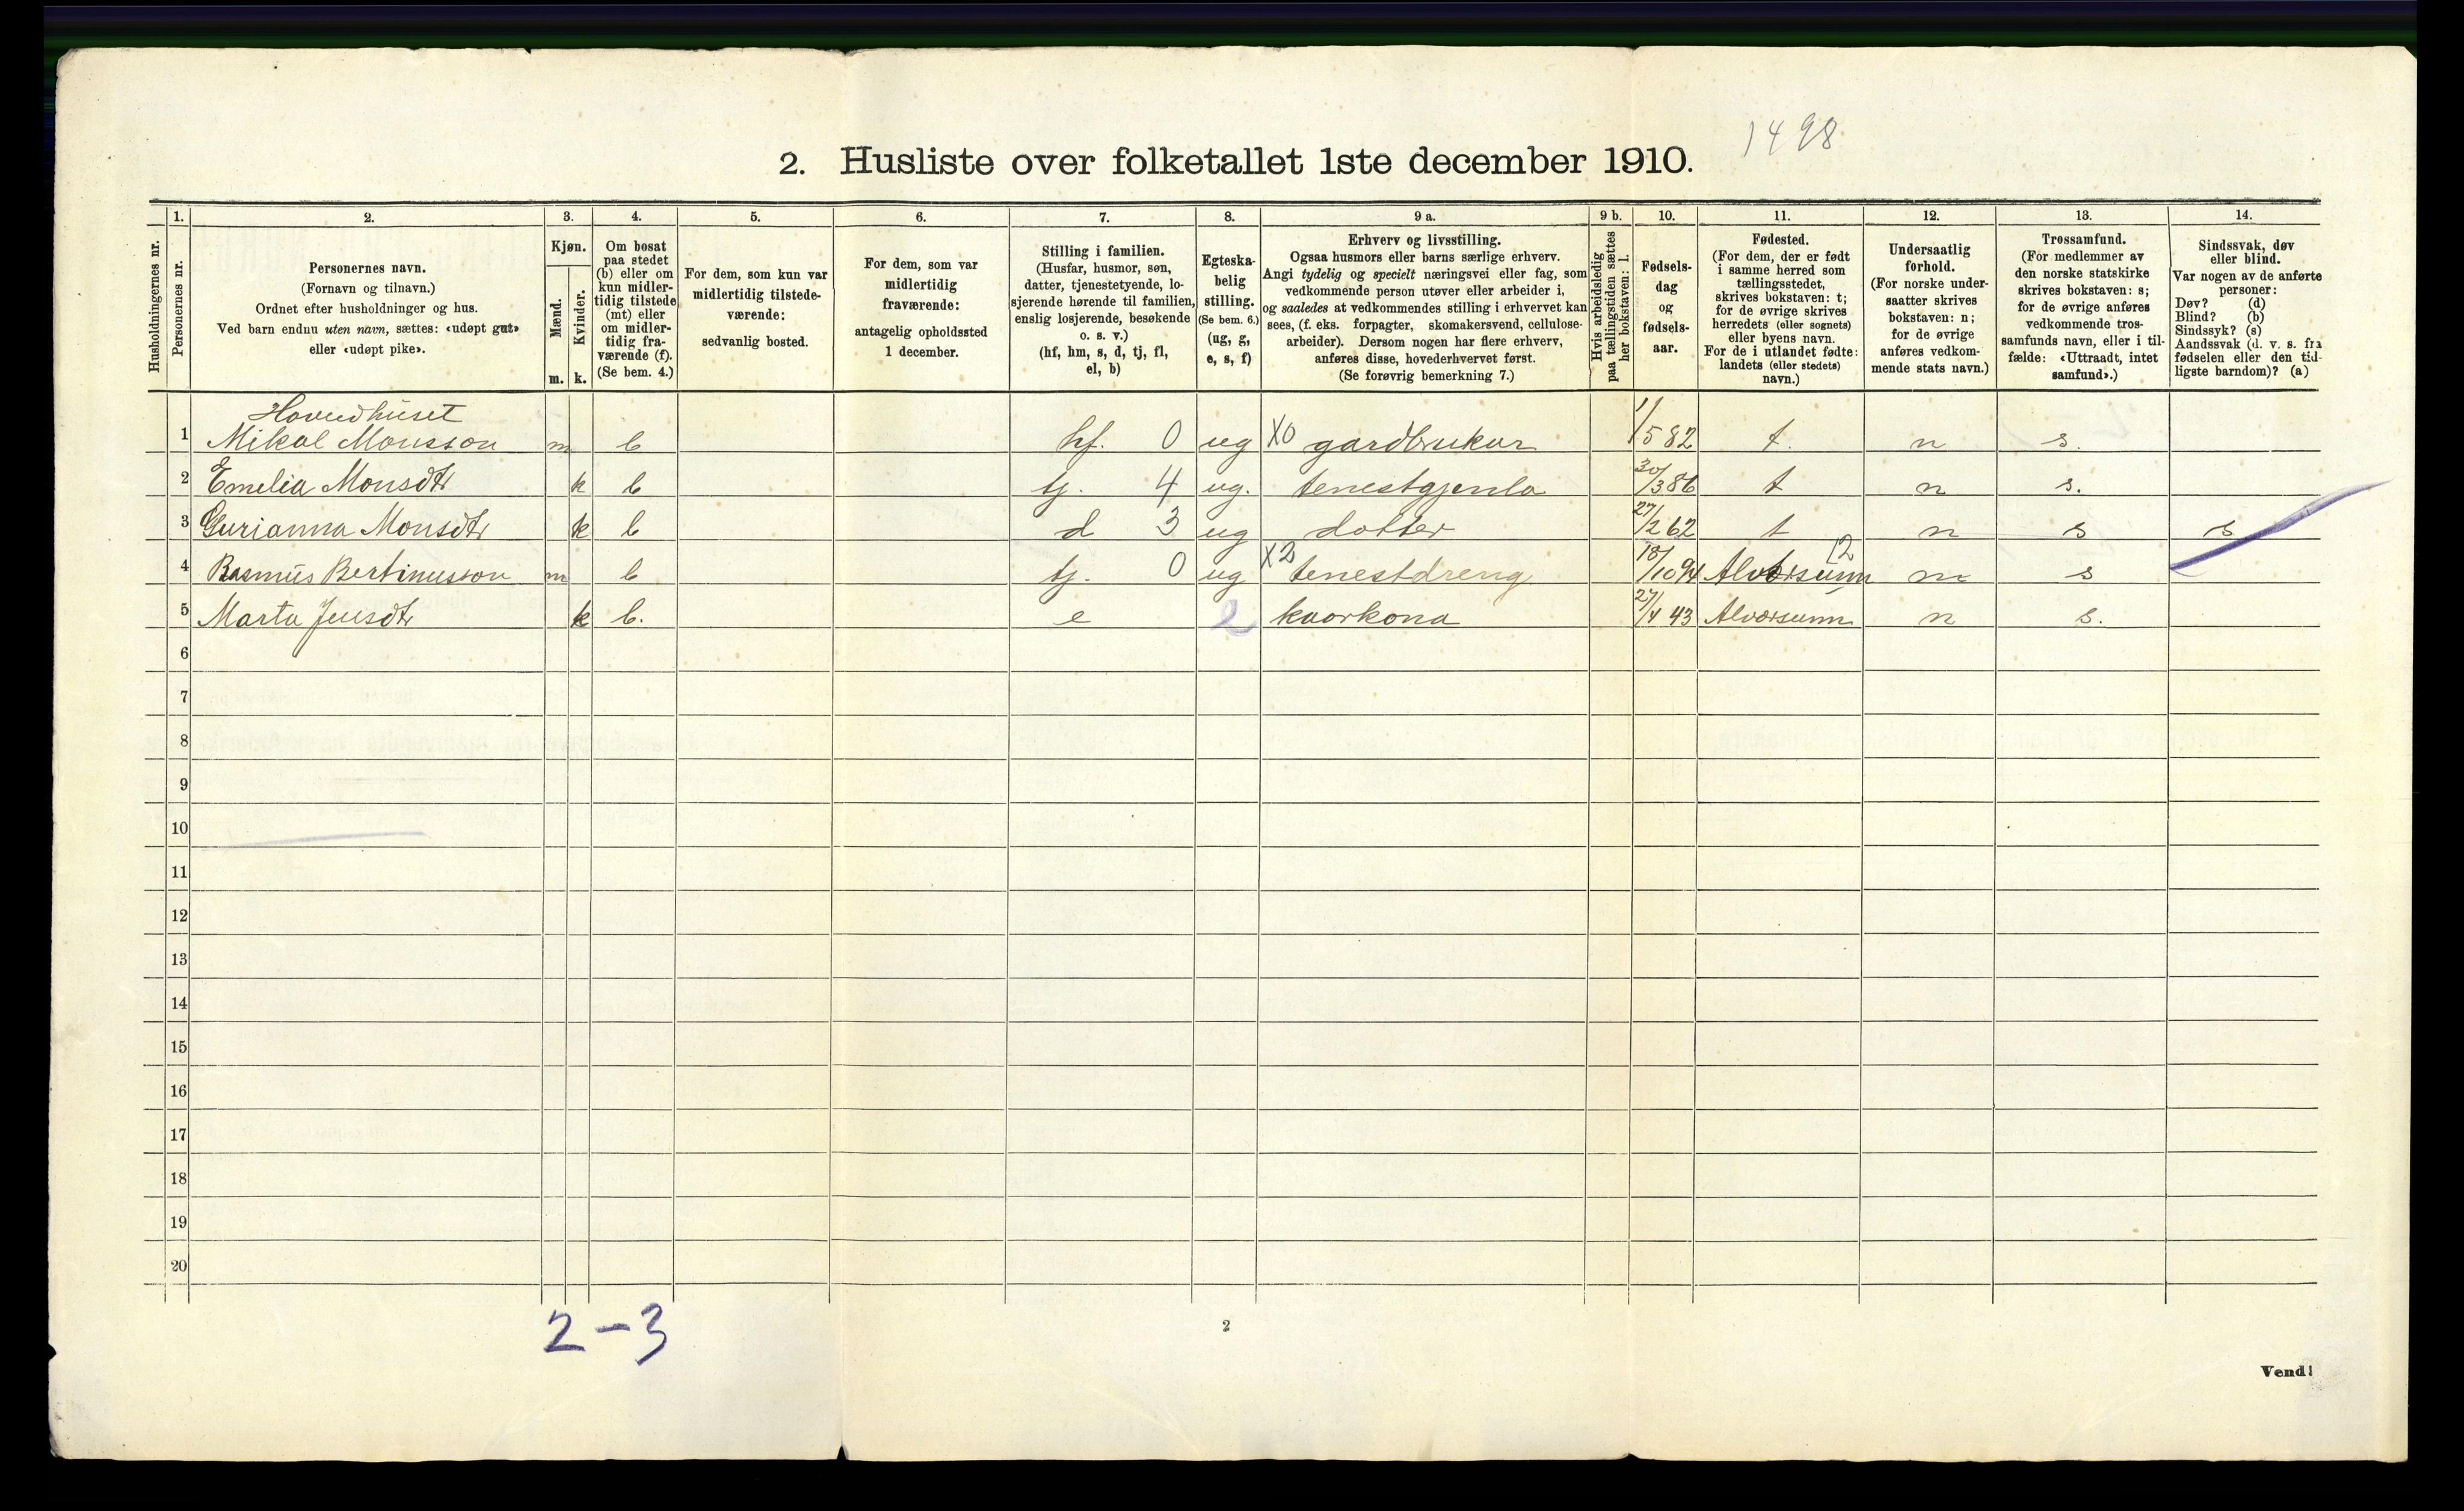 1498
2. Husliste over folketallet 1ste december 1910.
Husholdningernes nr.
1.
Personernes nr.
2.
Personernes navn.
(Fornavn og tilnavn.)
Ordnet efter husholdninger og hus.
Ved barn endnu uten navn, sættes: «udøpt gut»
eller «udøpt pike».
3.
Kjøn.
Mænd.
Kvinder.
m. k.
4.
Om bosat
paa stedet
(b) eller om
kun midler-
tidig tilstede
(mt) eller
om midler-
tidig fra-
værende (f).
(Se bem. 4.)
5.
For dem, som kun var
midlertidig tilstede-
værende:
sedvanlig bosted.
6.
For dem, som var
midlertidig
fraværende:
antagelig opholdssted
1 december.
7.
Stilling i familien.
(Husfar, husmor, søn,
datter, tjenestetyende, lo-
sjerende hørende til familien,
enslig losjerende, besøkende
o. s. v.)
(hf, hm, s, d, tj, fl,
el, b)
8.
Egteska-
belig
stilling.
(Se bem. 6.)
(ug, g,
e, s, f)
9 a.
Erhverv og livsstilling.
Ogsaa husmors eller barns særlige erhverv.
Angi tydelig og specielt næringsvei eller fag, som
vedkommende person utøver eller arbeider i,
og saaledes at vedkommendes stilling i erhvervet kan
sees, (f. eks. forpagter, skomakersvend, cellulose-
arbeider). Dersom nogen har flere erhverv,
anføres disse, hovederhvervet først.
(Se forøvrig bemerkning 7.)
9 b.
Hvis arbeidsledig
paa tællingstiden sættes
her bokstaven: l.
10.
Fødsels-
dag
og
fødsels-
aar.
11.
Fødested.
(For dem, der er født
i samme herred som
tællingsstedet,
skrives bokstaven: t;
for de øvrige skrives
herredets (eller sognets)
eller byens navn.
For de i utlandet fødte:
landets (eller stedets)
navn.)
12.
Undersaatlig
forhold.
(For norske under-
saatter skrives
bokstaven: n;
for de øvrige
anføres vedkom-
mende stats navn.)
13.
Trossamfund.
(For medlemmer av
den norske statskirke
skrives bokstaven: s;
for de øvrige anføres
vedkommende tros-
samfunds navn, eller i til-
fælde: «Uttraadt, intet
samfund».)
14.
Sindssvak, døv
eller blind.
Var nogen av de anførte
personer:
Døv? (d)
Blind? (b)
Sindssyk? (s)
Aandssvak (d. v. s. fra
fødselen eller den tid-
ligste barndom)? (a)
Hovudhuset
1 Mikal Monsson m b hf. 0 ug X0 gardbrukar 1/5 82 t. n s.
2 Emelia Monsdtr k b tj. 4 ug. tenestgjenta 30/3 86 t n s.
3 Gurianna Monsdtr k b d 3 ug dotter 27/2 62 t n s s
4 Rasmus Bertinusson m b tj. 0 ug X2 tenestdreng 18/10 94 Alversunn 12 n s
5 Marta Jensdtr k b. e e kaarkona 27/4 43 Alversunn n s.
6
7
8
9
10
11
12
13
14
15
16
17
18
19
20
2-3
2
Vend!